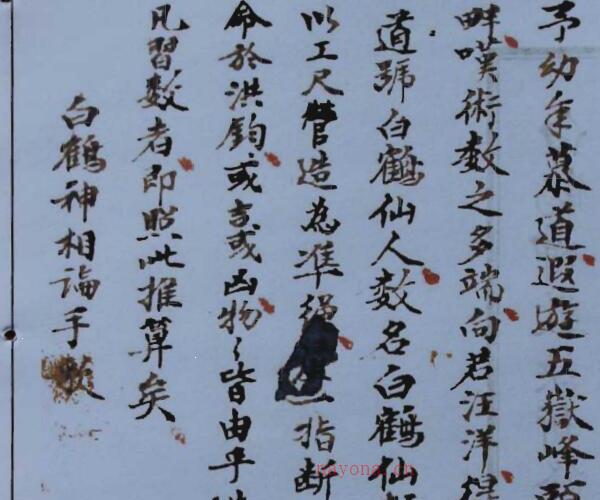 予幼年慕道遐遊五嶽峰
畔嘆術数之多端向若汪洋
道號白鶴仙人数名白鶴仙
以工尺營造為準繩一指断
命於洪鈞或吉或凶物々皆由乎
凡習数者即照此推算矣
白鶴神相論手
nayona.cn